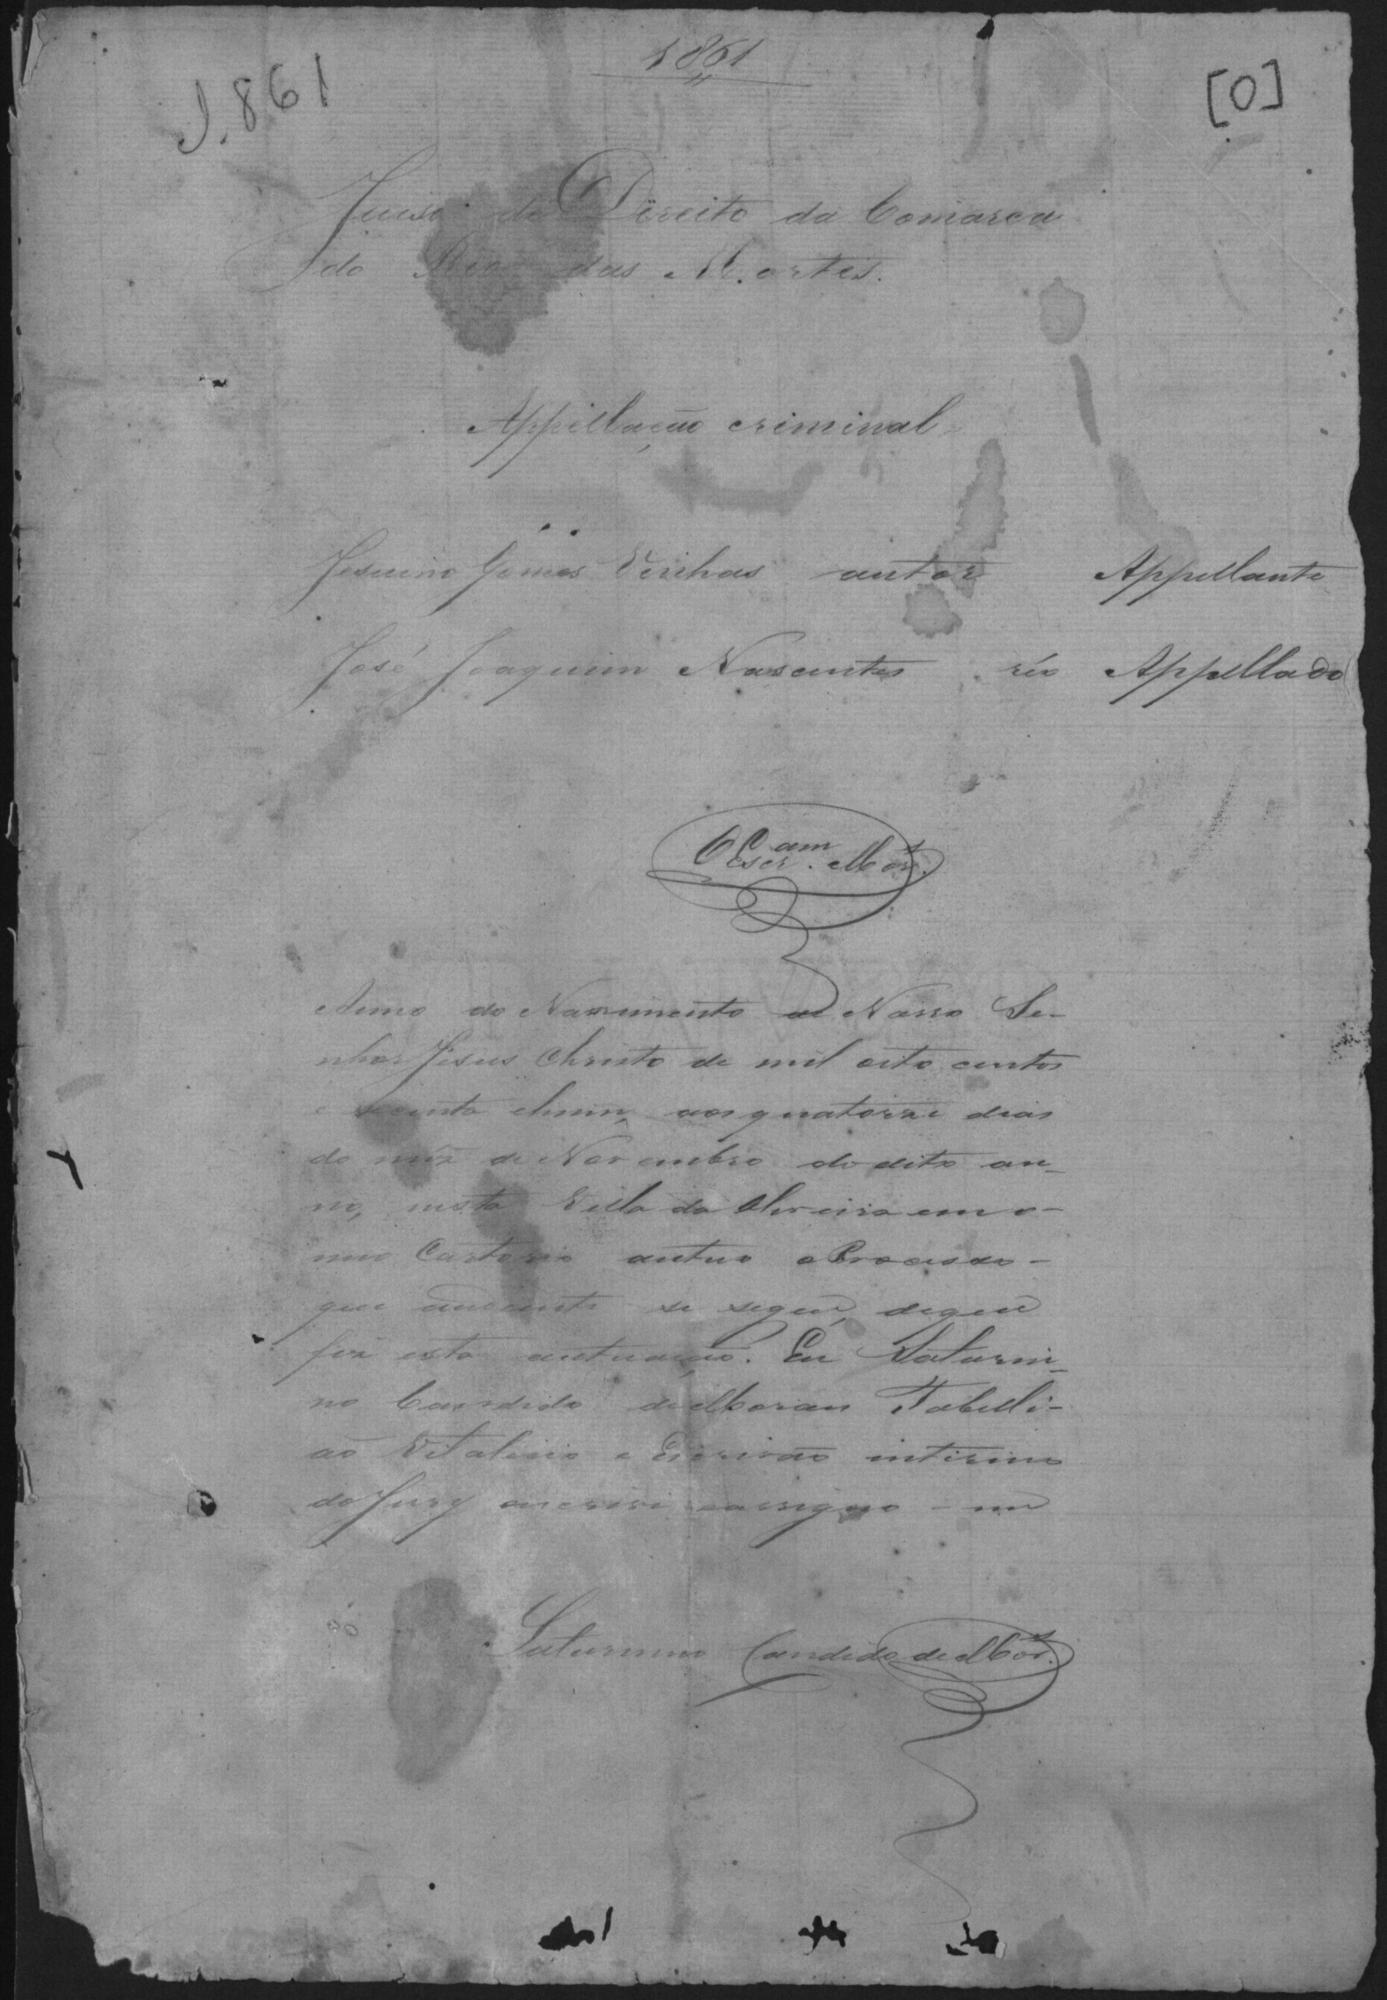 1861
1.861
[0]
Juiso de Direito da Comarca
do Rio das Mortes.
Appellação criminal
Jesuino Gomes Vinhas autor Appellante
José Joaquim Nascentes réo Appellado
O Escr. am Mór.
Anno do Nascimento de Nosso Se-
nhor Jesus Christo de mil oito centos
e secenta e hum, aos quatorze dias
do mês de Novembro do dito an-
no, nesta Villa da Oliveira em o
meu Cartorio autuo o Processo
que adeante se segue, de que
fiz esta autuação. Eu Saturni-
no Candido de Moraes Tabelli-
ão Vitalicio e Escrivão interino
do Jury o escrevi e assigno-me
Saturnino Candido de Mor.